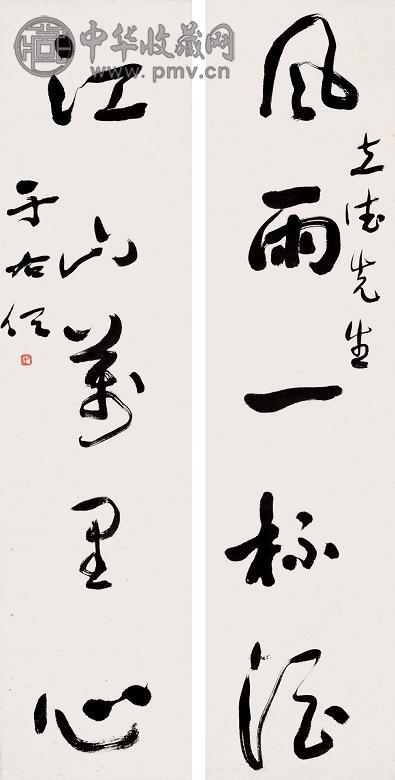 風雨一杯酒
立德先生
江山萬里心
于右任
中华收藏网
www.pmv.cn